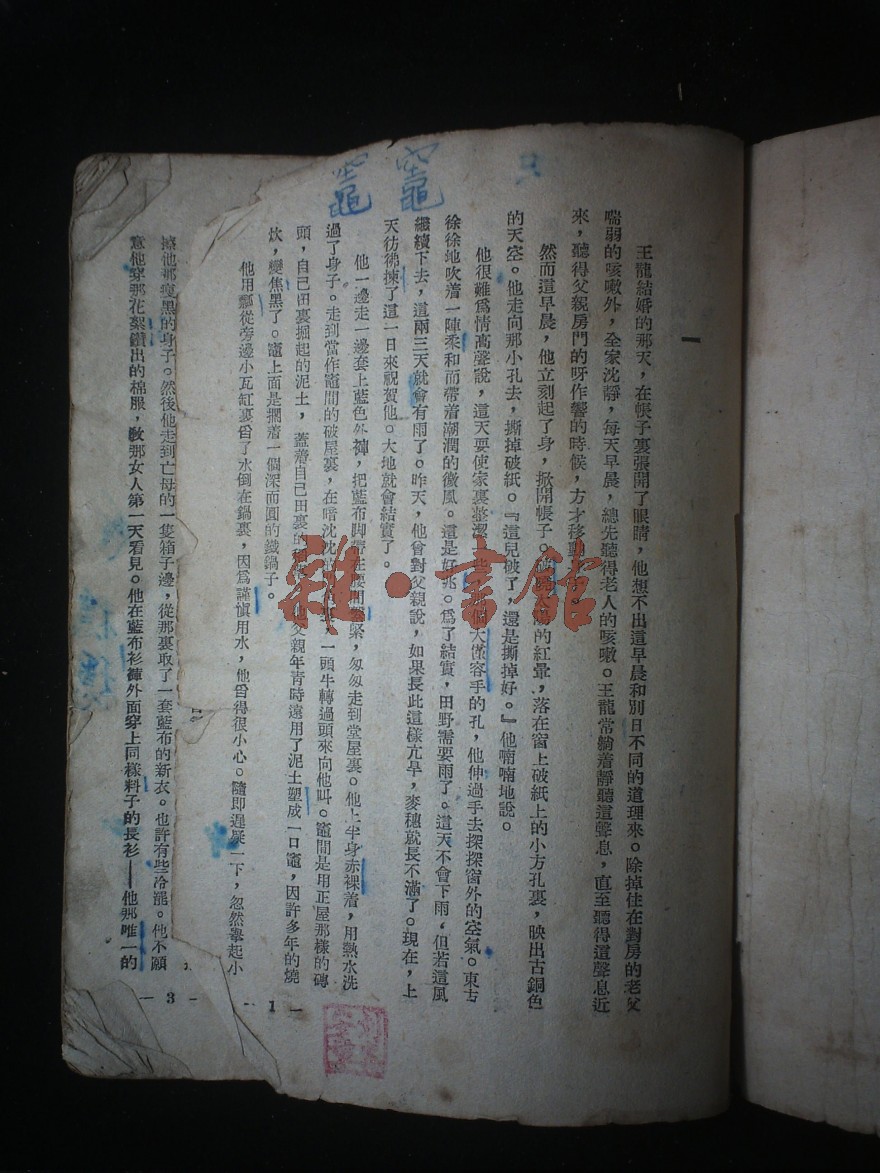 一
王龍結婚的那天，在帳子裏張開了眼睛，他想不出這早晨和別日不同的道理來。除掉住在對房的老父
喘弱的咳嗽外，全家沈靜，每天早晨，總先聽得老人的咳嗽。王龍常躺着靜聽這聲息，直至聽得這聲息近
來，聽得父親房門的呀作響的時候，方才移動
然而這早晨，他立刻起了身，掀開帳子。的紅暈，落在窗上破紙上的小方孔裏，映出古銅色
的天空。他走向那小孔去，撕掉破紙。『這兒破了，還是撕掉好。』他喃喃地說。
他很難爲情高聲說，這天要使家裏整潔一些個大僅容手的孔，他伸過手去探探窗外的空氣。東方
徐徐地吹着一陣柔和而帶着潮潤的微風。這是好兆。爲了結實，田野需要雨了。這天不會下雨，但若這風
繼續下去，這兩三天就會有雨了。昨天，他曾對父親說，如果長此這樣亢旱，麥穗就長不滿了。現在，上
天彷彿揀了這一日來祝賀他。大地就會結實了。
他一邊走一邊套上藍色外褲，把藍布脚帶在腰間緊，匆匆走到堂屋裏。他上半身赤裸着，用熱水洗
過了身子。走到當作竈間的破屋裏，在暗沈沈一頭牛轉過頭來向他叫。竈間是用正屋那樣的磚
頭，自己田裏掘起的泥土，蓋着自己田裏的父親年青時遠用了泥土塑成一口竈，因許多年的燒
炊，變焦黑了。竈上面是擱着一個深而圓的鐵鍋子。
他用瓢從旁邊小瓦缸裏舀了水倒在鍋裏，因爲謹慎用水，他舀得很小心。隨即遲疑一下，忽然舉起小
— 1 —
擦他那瘦黑的身子。然後他走到亡母的一隻箱子邊，從那裏取了一套藍布的新衣。也許有些冷罷。他不願
意他穿那花絮鑽出的棉服，教那女人第一天看見。他在藍布衫褲外面穿上同樣料子的長衫——他那唯一的
— 3 —
雜·書館